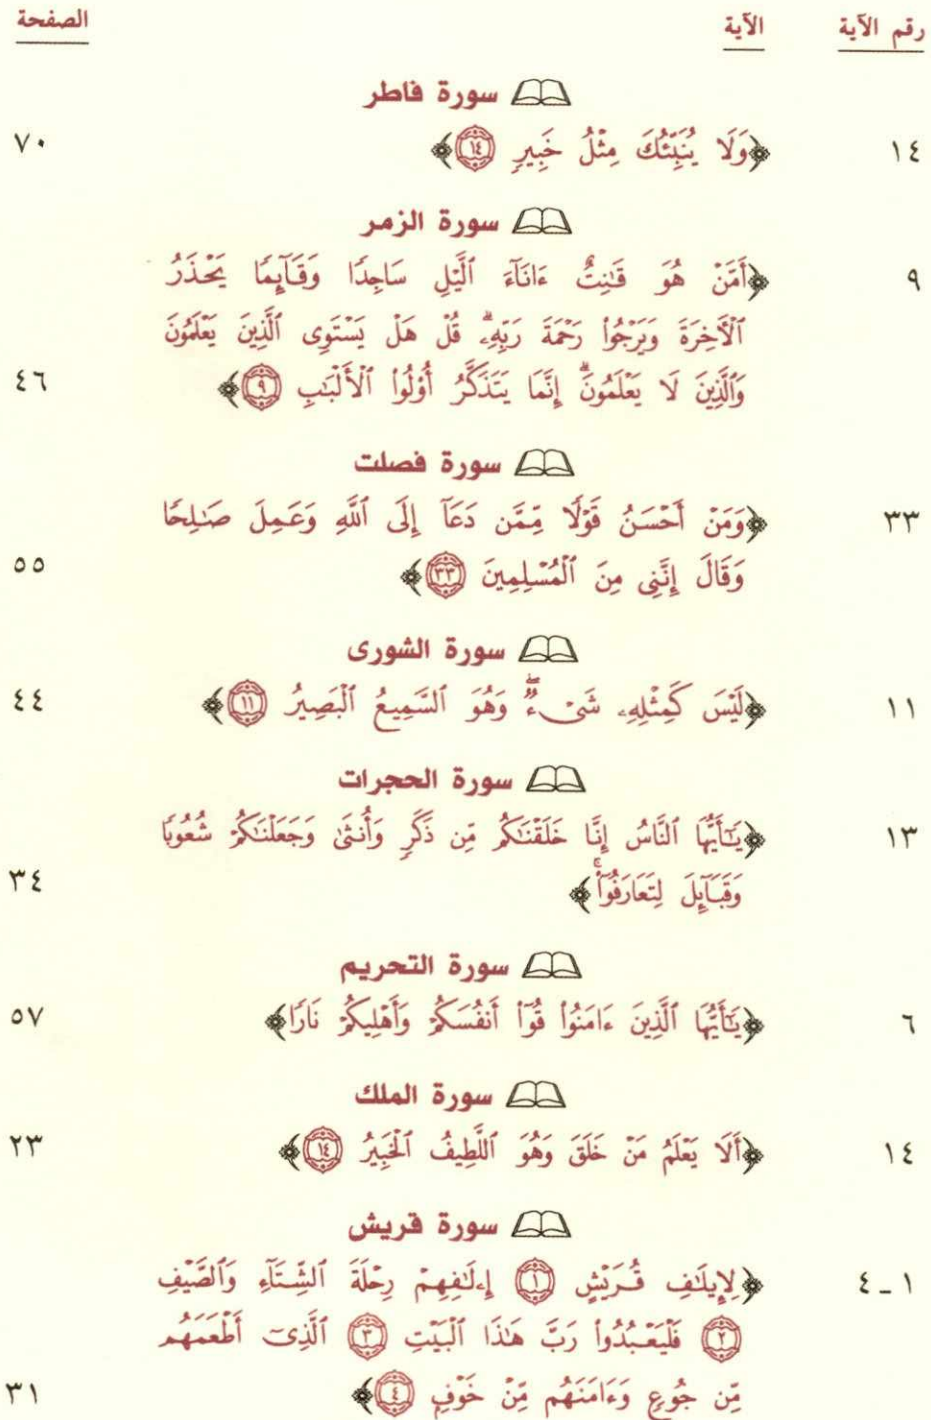 رقم الآية الآية الصفحة
سورة فاطر
١٤ ﴿وَلَا يُنَبِّئُكَ مِثْلُ خَبِيرٍ ١٤﴾ ٧٠
سورة الزمر
٩ ﴿أَمَّنْ هُوَ قَـٰنِتٌ ءَانَآءَ ٱلَّيْلِ سَاجِدًا وَقَآئِمًا يَحْذَرُ
ٱلْأَخِرَةَ وَيَرْجُوا۟ رَحْمَةَ رَبِّهِۦ ۗ قُلْ هَلْ يَسْتَوِى ٱلَّذِينَ يَعْلَمُونَ
وَٱلَّذِينَ لَا يَعْلَمُونَ ۗ إِنَّمَا يَتَذَكَّرُ أُو۟لُوا۟ ٱلْأَلْبَـٰبِ ٩﴾ ٤٦
سورة فصلت
٣٣ ﴿وَمَنْ أَحْسَنُ قَوْلًا مِّمَّن دَعَآ إِلَى ٱللَّهِ وَعَمِلَ صَـٰلِحًا
وَقَالَ إِنَّنِى مِنَ ٱلْمُسْلِمِينَ ٣٣﴾ ٥٥
سورة الشورى
١١ ﴿لَيْسَ كَمِثْلِهِۦ شَىْءٌ ۖ وَهُوَ ٱلسَّمِيعُ ٱلْبَصِيرُ ١١﴾ ٤٤
سورة الحجرات
١٣ ﴿يَـٰٓأَيُّهَا ٱلنَّاسُ إِنَّا خَلَقْنَـٰكُم مِّن ذَكَرٍ وَأُنثَىٰ وَجَعَلْنَـٰكُمْ شُعُوبًا
وَقَبَآئِلَ لِتَعَارَفُوٓا۟ ۚ﴾ ٣٤
سورة التحريم
٦ ﴿يَـٰٓأَيُّهَا ٱلَّذِينَ ءَامَنُوا۟ قُوٓا۟ أَنفُسَكُمْ وَأَهْلِيكُمْ نَارًا﴾ ٥٧
سورة الملك
١٤ ﴿أَلَا يَعْلَمُ مَنْ خَلَقَ وَهُوَ ٱللَّطِيفُ ٱلْخَبِيرُ ١٤﴾ ٢٣
سورة قريش
١ - ٤ ﴿لِإِيلَـٰفِ قُرَيْشٍ ١ إِۦلَـٰفِهِمْ رِحْلَةَ ٱلشِّتَآءِ وَٱلصَّيْفِ
٢ فَلْيَعْبُدُوا۟ رَبَّ هَـٰذَا ٱلْبَيْتِ ٣ ٱلَّذِىٓ أَطْعَمَهُم
مِّن جُوعٍ وَءَامَنَهُم مِّنْ خَوْفٍ ٤﴾ ٣١